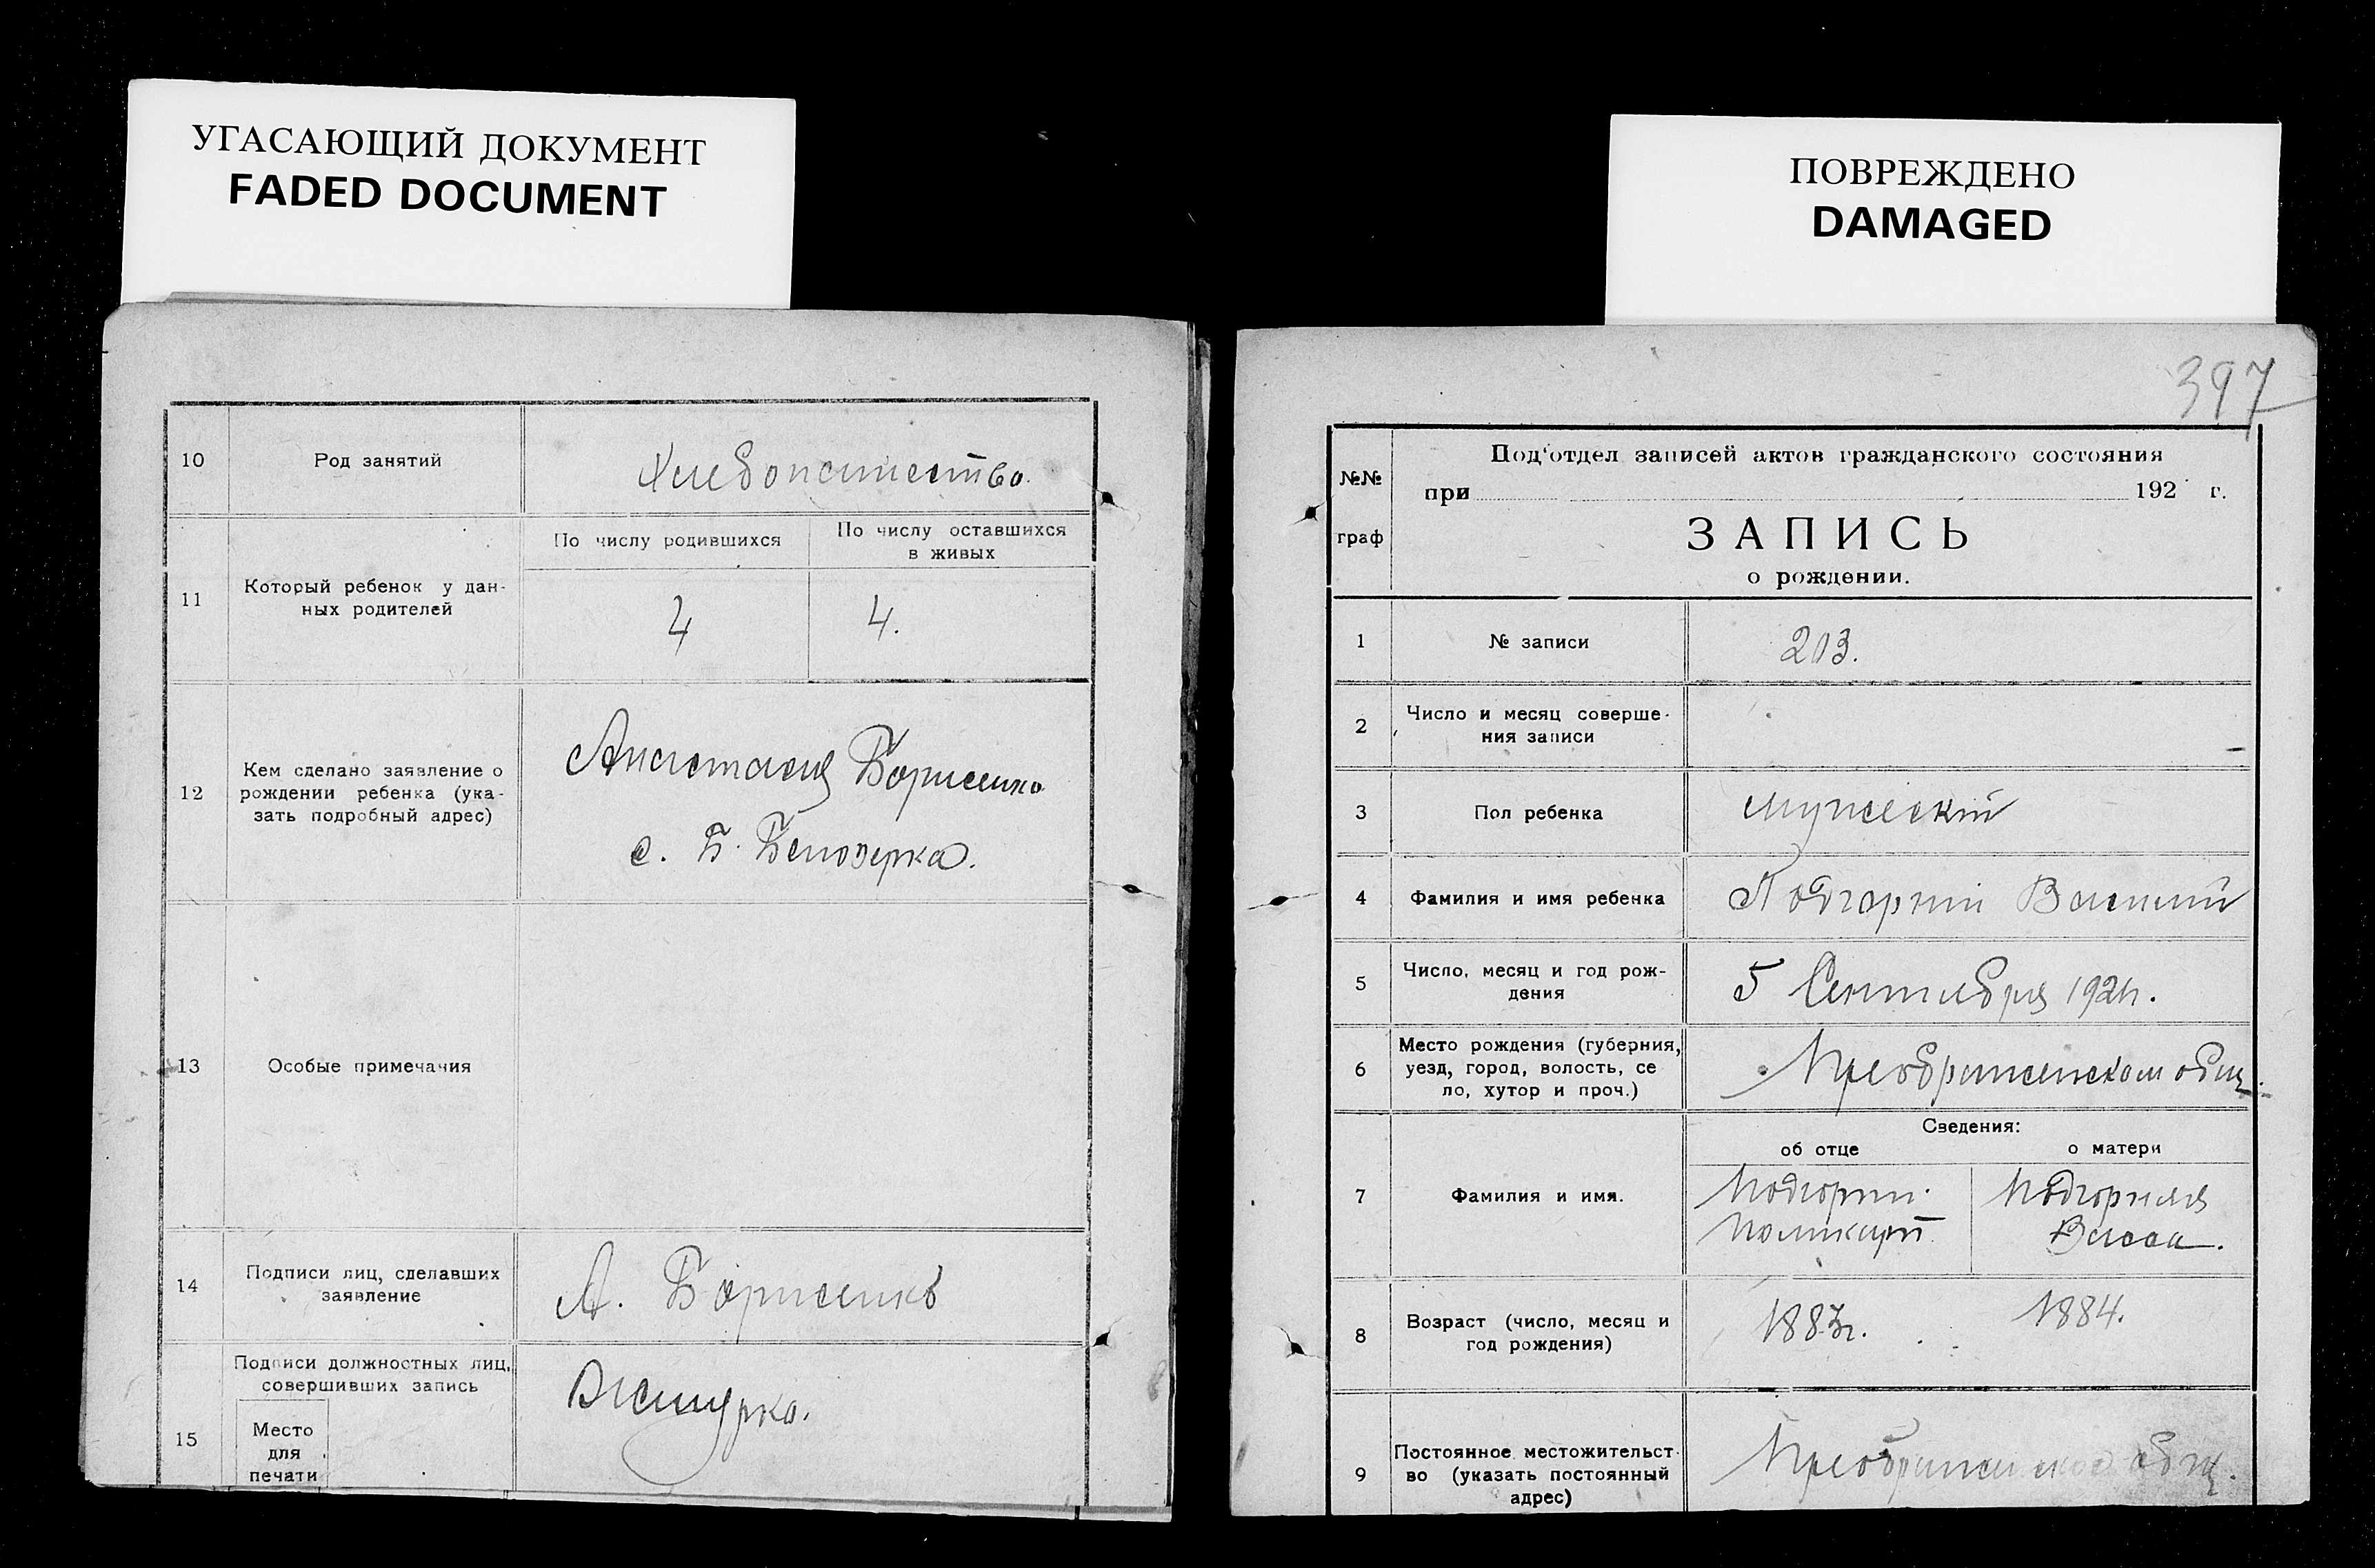 УГАСАЮЩИЙ ДОКУМЕНТ
FADED DOCUMENT
10
Род занятий
Хлебопашество.
11
Который ребенок у дан-
ных родителей
По числу родившихся
По числу оставшихся
в живых
4
4.
12
Кем сделано заявление о
рождении ребенка (ука-
зать подробный адрес)
Анастасия Борисенко
с. Б. Белозерка.
13
Особые примечания
14
Подписи лиц, сделавших
заявление
А. Борисенко
15
Подписи должностных лиц,
совершивших запись
Место
для
печати
ПОВРЕЖДЕНО
DAMAGED
397
№№
граф
Под'отдел записей актов гражданского состояния
при 192 г.
ЗАПИСЬ
о рождении.
1
№ записи
203.
2
Число и месяц соверше-
ния записи
3
Пол ребенка
мужескій
4
Фамилия и имя ребенка
Подгорний Василий
5
Число, месяц и год рож-
дения
5 Сентября
6
Место рождения (губерния,
уезд, город, волость, се
ло, хутор и проч.)
Преображенском общ.
Сведения:
об отце
о матери
7
Фамилия и имя.
Подгорни
Поликарп
Подгорная
Васса.
8
Возраст (число, месяц и
год рождения)
1883г.
1884.
9
Постоянное местожительст-
во (указать постоянный
адрес)
Преображенское общ.